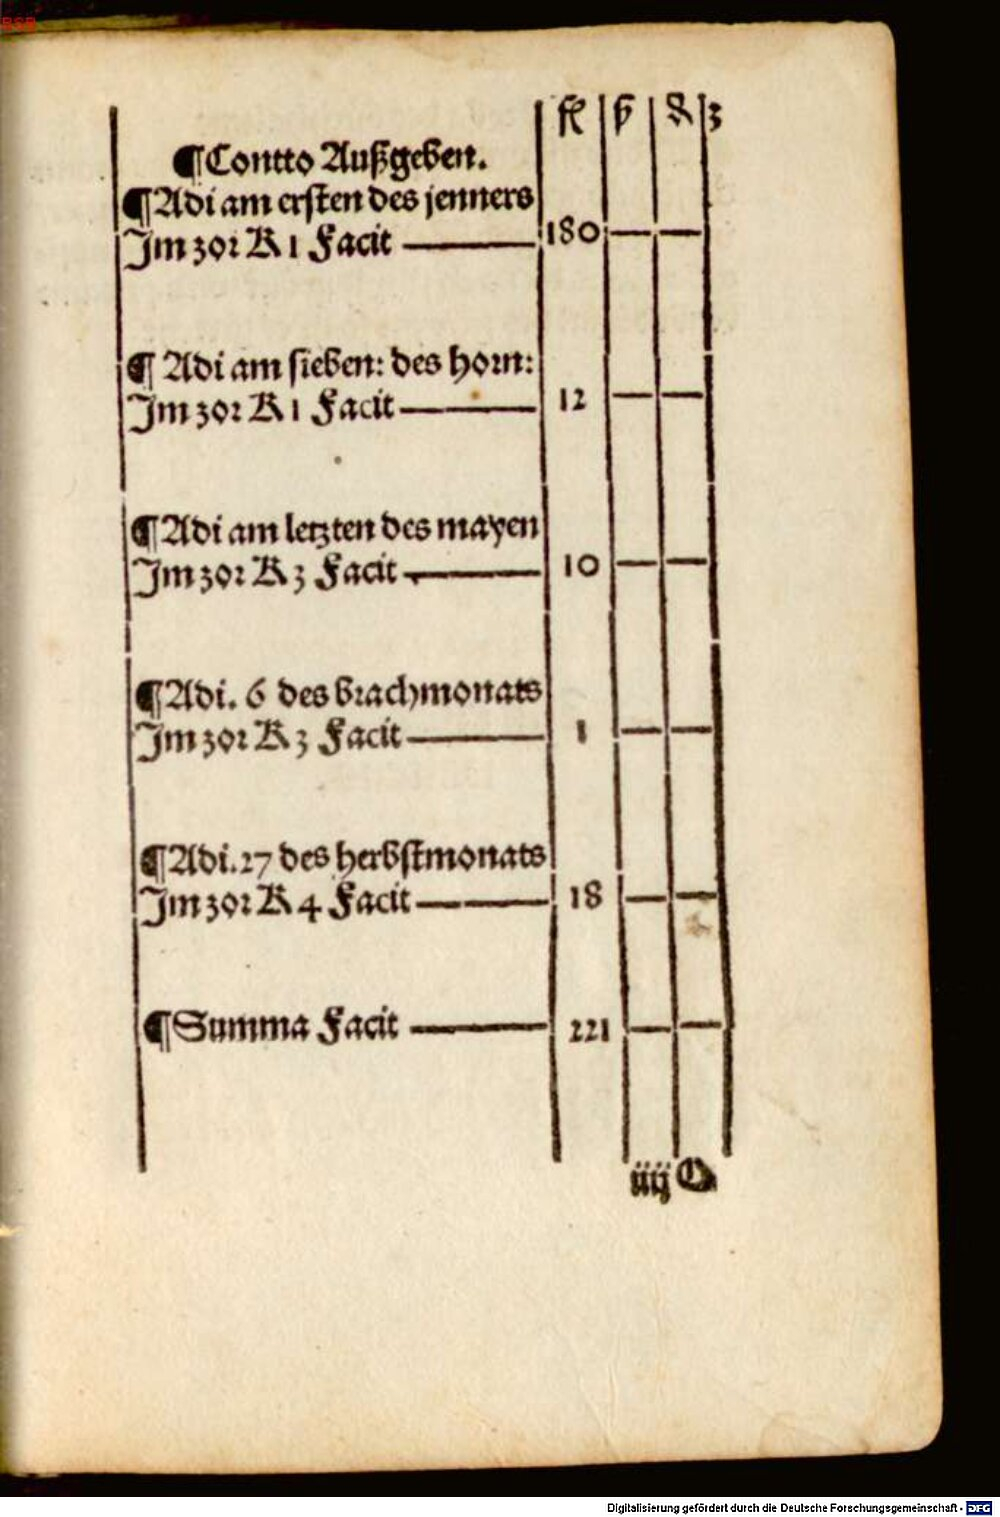 BSB
fl ß ₰ ʒ
¶Contto Außgeben.
¶Adi am ersten des jenners
Im zor K 1 Facit 180 — —
¶ Adi am sieben: des horn:
Im zor K 1 Facit 12 — —
¶Adi am letzten des mayen
Im zor K 3 Facit 10 — —
¶Adi. 6 des brachmonats
Im zor K 3 Facit 1 — —
¶Adi. 27 des herbstmonats
Im zor K 4 Facit 18 — —
¶Summa Facit 221 — —
iiij
Digitalisierung gefördert durch die Deutsche Forschungsgemeinschaft - DFG